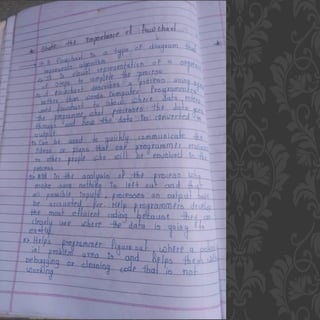 * State the importance of flowchart.
→ A flowchart is a type of diagram that
represents algorithm
→ It is visual representation of a sequence
of steps to complete the process
→ A flowchart describes a process using symbols
rather than words Computer Programmers
use flowcharts to show where data enters
the programme, what processes the data
through and how the data is converted to
output
→ Can be used to quickly communicate the
ideas or plans that one programmer
to other people who will be involved in the
process
→ Aid in the analysis of the process
make sure nothing is left out and that
all possible inputs, processes an output have
be accounted for Help programmers develop
the most efficient coding because they can
clearly see where the data is going to
→ Helps programmer figure out where a
problem area is and helps them with
debugging or cleaning code that is not
working